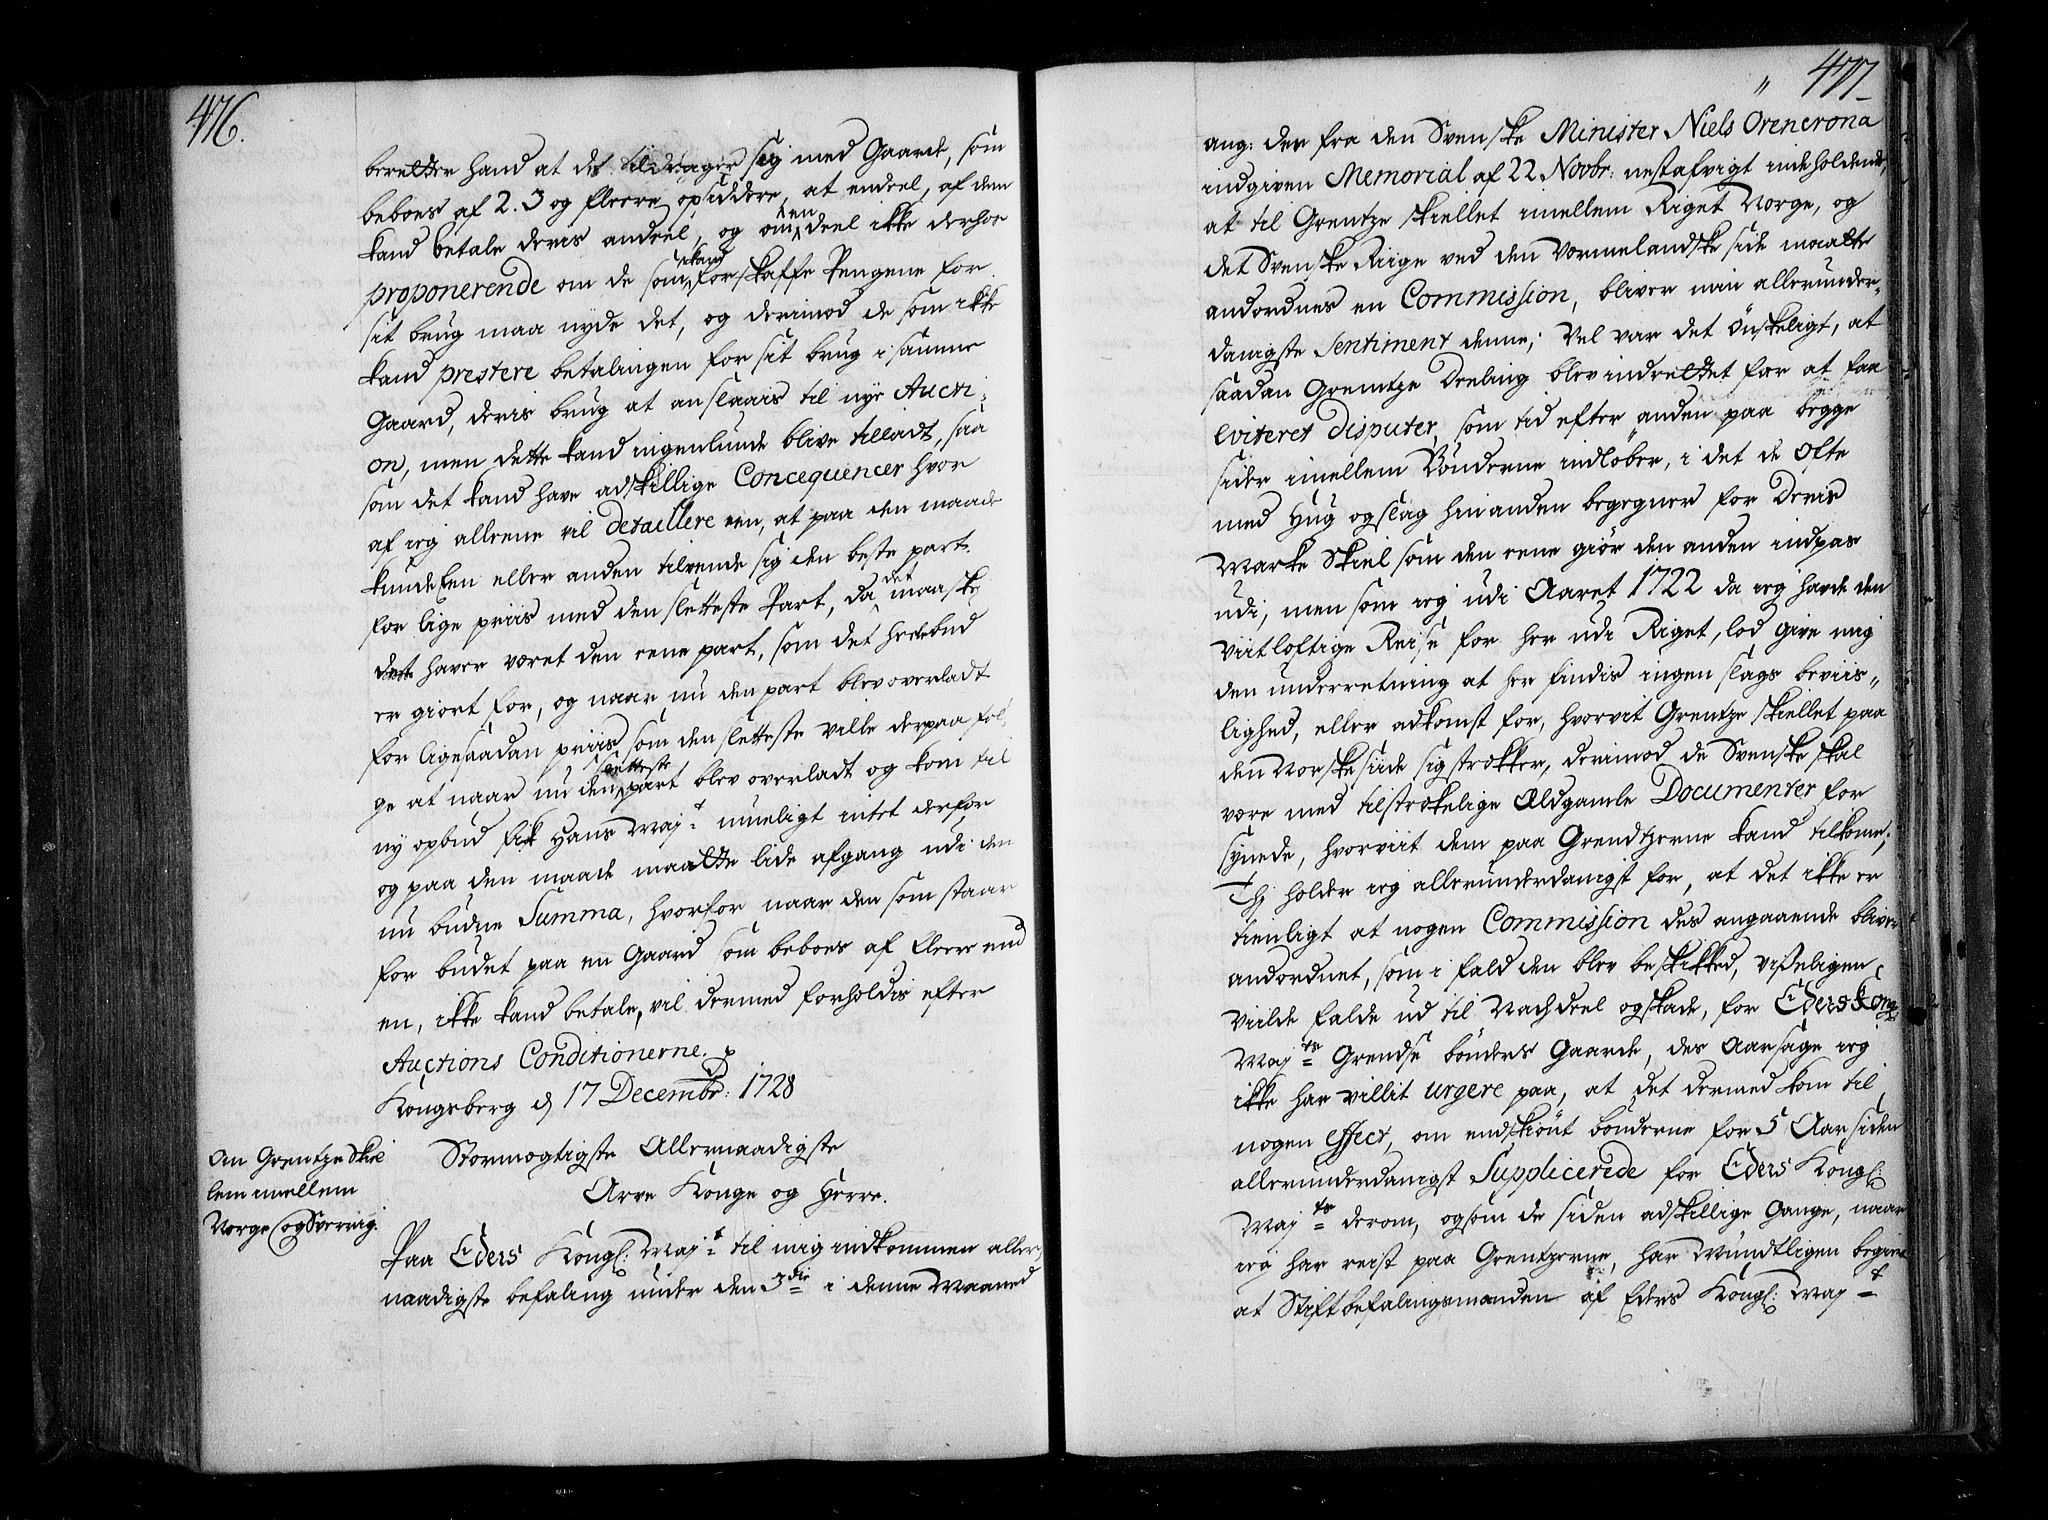 476.
beretter hand at det tildrager sig med Gaarde, som
beboes af 2. 3 og fleere opsiddere, at endeel, af dem
kand betale deris andeel, og om en deel ikke derhos
proponerende om de som kand forskaffe Pengene for
sit brug maa nyde det, og derimod de som ikke
kand prestere betalingen for sit brug i samme
Gaard, deris brug at anslaais til nye Aucti-
on, men dette kand ingenlunde blive tilladt, saa
som det kand have adskillige Concequencer hvor
af ieg alleene vil detaillere een, at paa den maade
kunde Een eller anden tilvende sig den beste part
for lige priis med den sletteste Part, da det maaske
dett haver været den eene part, som det heele bud
er giort for, og naar nu den part blev overladt
for ligesaadan priis som den sletteste ville derpaa fol-
ge at naar nu den sletteste part blev overladt og kom til
ny opbud fik Hans Maj:t mueligt intet derfor
og paa den maade maatte lide afgang udi den
nu budne Summa, hvorfor naar den som staar
for budet paa en Gaard som beboes af fleere end
en, ikke kand betale, vil dermed forholdis efter
Auctions Conditionerne. p
Kongsberg d 17 Decembr: 1728
An Grentze Skie
lem imellem
Norge og Sverrig.
Stormegtigste Allernaadigste
Arve Konge og Herre.
Paa Eders Kongl: Maj:t til mig indkommen aller-
naadigste befaling under den 3die i denne Maaned
477
ang: der fra den Svenske Minister Niels Orencrona
indgiven Memorial af 22 Novbr: nestafvigt indeholdende,
at til Grentze skiellet imellem Riget Norge, og
det Svenske Riige ved den Vermelandske side maatte
andordnes en Commission, bliver min allerunder-
danigste Sentiment denne; Vel var det önskeligt, at
saadan Grentze Deeling blev indrettet for at faa
Eviteret Disputer, som tid efter anden paa begge
sider imellem Bönderne indlöber, i det de ofte
med Hug og slag hinanden begegner for deris
Marke Skiel som den eene giör den anden indpas
udi, men som ieg udi Aaret 1722 da ieg havde den
viitloftige Reise for her udi Riget, lod give mig
den underretning at her findis ingen slags beviis-
lighed, eller adkomst for, hvorvit Grentze skiellet paa
den Norske siide sig strekker, derimod de Svenske skal
vere med tilstrekelige Eldgamle Documenter for
synede, hvorviit dem paa Grendtzerne kand tilkome;
Thj holder ieg allerunderdanigst for, at det ikke er
tienligt at nogen Commission des angaaende bliver
andordnet, som i fald den blev beskikked, visseligen
viilde falde ud til Nachdeel og skade, for Eders Kong
Maj:ts Grendse bönders Gaarde, des Aarsage ieg
ikke har villit urgere paa, at det dermed kom til
nogen Effect, om endskiönt bönderne for 5 Aar siden
allerunderdanigst Supplicerede for Eders Kongl:
Maj:ts derom, ogsom de siden adskillige Gange, naar
ieg har reist paa Grentzerne, har Mundtligen begiert
at Stiftbefalingsmanden af Eders Kongl: Maj:t